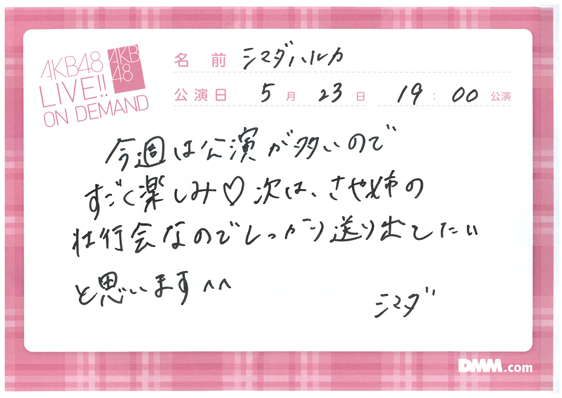 AKB48
LIVE!!
ON DEMAND
AKB
48
名前 シマダハルカ
公演日 5月23日 19:00公演
今週は公演が多いので
すごく楽しみ♡次は、さや姉の
壮行会なのでしっかり送り出したい
と思います^^
シマダ
DMM.com